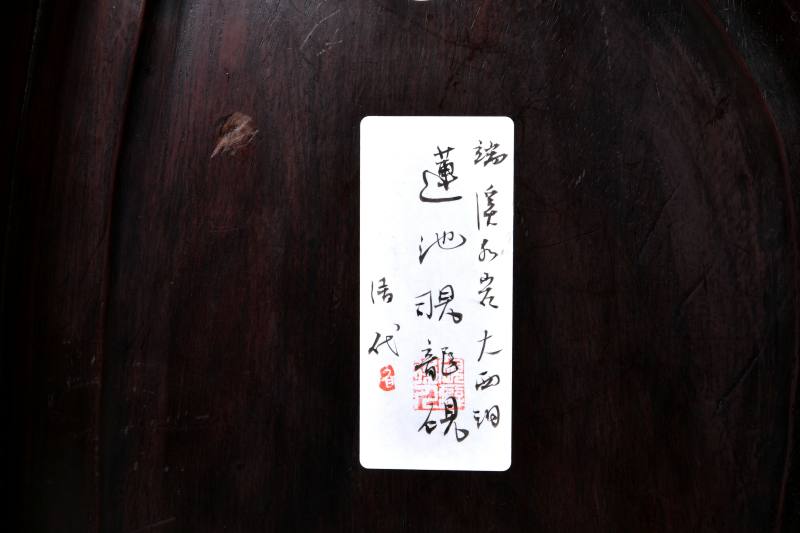 端溪水岩大西洞
蓮池現龍硯
清代